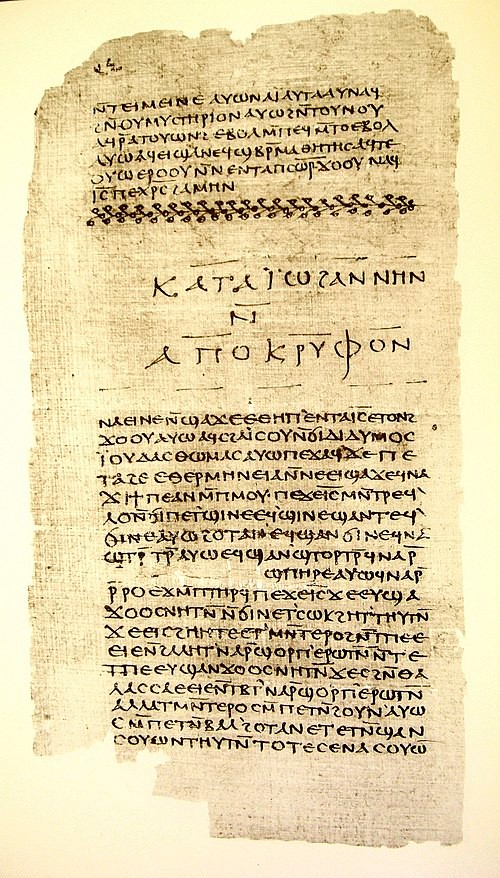 ⲛ̄ⲧⲉⲓⲙⲉⲓⲛⲉ ⲁⲩⲱ ⲛⲁⲓ ⲁⲩⲧⲁⲁⲩ ⲛⲁϥ
ϩⲛ̄ⲟⲩⲙⲩⲥⲧⲏⲣⲓⲟⲛ ⲁⲩⲱ ϩⲛ̄ⲧⲟⲩⲛⲟⲩ
ⲁϥⲣ̄ⲁⲧⲟⲩⲱⲛϩ ⲉⲃⲟⲗ ⲙ̄ⲡⲉϥⲙ̄ⲧⲟ ⲉⲃⲟⲗ
ⲁⲩⲱ ⲁϥⲉⲓ ϣⲁ ⲛⲉϥϣⲃⲣ̄ⲙⲁⲑⲏⲧⲏⲥ ⲁϥⲧⲉ
ⲟⲩⲱ ⲉⲣⲟⲟⲩ ⲛ̄ⲛⲉⲛⲧⲁⲡⲥⲱ̄ⲣ ϫⲟⲟⲩ ⲛⲁϥ
ⲓ̄ⲥ̄ ⲡⲉⲭ̄ⲣ̄ⲥ̄ ϩⲁⲙⲏⲛ
ⲕⲁⲧⲁ ⲓ̈ⲱϩⲁⲛⲛⲏⲛ
ⲛ̄
ⲁⲡⲟⲕⲣⲩⲫⲟⲛ
ⲛⲁⲉⲓ ⲛⲉ ⲛ̄ϣⲁϫⲉ ⲉⲑⲏⲡ ⲉⲛⲧⲁ ⲓ̄ⲥ̄ ⲉⲧⲟⲛϩ
ϫⲟⲟⲩ ⲁⲩⲱ ⲁϥⲥϩⲁⲓ̈ⲥⲟⲩ ⲛ̄ϭⲓ ⲇⲓⲇⲩⲙⲟⲥ
ⲓ̈ⲟⲩⲇⲁⲥ ⲑⲱⲙⲁⲥ ⲁⲩⲱ ⲡⲉϫⲁϥ ϫⲉ ⲡⲉ
ⲧⲁϩⲉ ⲉⲑⲉⲣⲙⲏⲛⲉⲓⲁ ⲛ̄ⲛⲉⲉⲓϣⲁϫⲉ ϥⲛⲁ
ϫⲓ ϯⲡⲉ ⲁⲛ ⲙ̄ⲡⲙⲟⲩ ⲡⲉϫⲉ ⲓ̄ⲥ̄ ⲙⲛ̄ⲧⲣⲉϥ
ⲗⲟ ⲛ̄ϭⲓ ⲡⲉⲧϣⲓⲛⲉ ⲉϥϣⲓⲛⲉ ϣⲁⲛⲧⲉϥ
ϭⲓⲛⲉ ⲁⲩⲱ ϩⲟⲧⲁⲛ ⲉϥϣⲁⲛϭⲓⲛⲉ ϥⲛⲁ
ϣⲧⲣ̄ⲧⲣ̄ ⲁⲩⲱ ⲉϥϣⲁⲛϣⲧⲟⲣⲧⲣ̄ ϥⲛⲁⲣ̄
ϣⲡⲏⲣⲉ ⲁⲩⲱ ϥⲛⲁⲣ̄
ⲣ̄ⲣⲟ ⲉϫⲙ̄ ⲡⲧⲏⲣϥ ⲡⲉϫⲉ ⲓ̄ⲥ̄ ϫⲉ ⲉⲩϣⲁ
ϫⲟⲟⲥ ⲛⲏⲧⲛ̄ ⲛ̄ϭⲓ ⲛⲉⲧⲥⲱⲕ ϩⲏⲧ ⲧⲏⲩⲧⲛ̄
ϫⲉ ⲉⲓⲥϩⲏⲏⲧⲉ ⲉⲧⲙⲛ̄ⲧⲉⲣⲟ ϩⲛ̄ ⲧⲡⲉ ⲉ
ⲉⲓⲉ ⲛ̄ϩⲁⲗⲏⲧ ⲛⲁⲣ̄ ϣⲟⲣⲡ ⲉⲣⲱⲧⲛ̄ ⲛ̄ⲧⲉ
ⲧⲡⲉ ⲉⲩϣⲁⲛϫⲟⲟⲥ ⲛⲏⲧⲛ̄ ϫⲉ ⲥϩⲛ̄ ⲑⲁ
ⲗⲁⲥⲥⲁ ⲉⲉⲓⲉ ⲛ̄ⲧⲃⲧ ⲛⲁⲣ̄ ϣⲟⲣⲡ ⲉⲣⲱⲧⲛ̄
ⲁⲗⲗⲁ ⲧⲙⲛ̄ⲧⲉⲣⲟ ⲥⲙ̄ⲡⲉⲧⲛ̄ϩⲟⲩⲛ ⲁⲩⲱ
ⲥⲙ̄ⲡⲉⲧⲛ̄ⲃⲁⲗ ϩⲟⲧⲁⲛ ⲉⲧⲉⲧⲛ̄ϣⲁⲛ
ⲥⲟⲩⲱⲛ ⲧⲏⲩⲧⲛ̄ ⲧⲟⲧⲉ ⲥⲉⲛⲁⲥⲟⲩⲱ